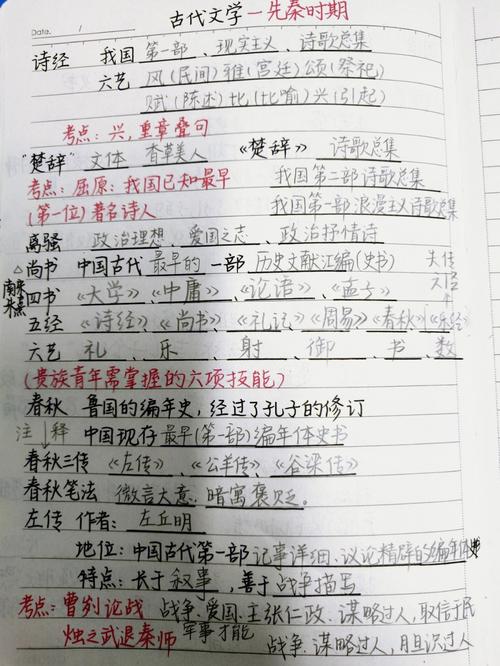 古代文学—先秦时期
诗经 我国第一部、现实主义、诗歌总集
六艺 风(民间)雅(宫廷)颂(祭祀)
赋(陈述)比(比喻)兴(引起)
考点：兴，重章叠句
"楚辞" 文体 香草美人 《楚辞》 诗歌总集
考点：屈原：我国已知最早 我国第二部诗歌总集
(第一位)著名诗人 我国第一部浪漫主义诗歌总集
离骚 政治理想、爱国之志、政治抒情诗
尚书 中国古代最早的一部历史文献汇编(史书) 失传
南宋朱熹 六经
四书 《大学》《中庸》《论语》《孟子》
五经 《诗经》《尚书》《礼记》《周易》《春秋》《乐经》
六艺 礼、乐、射、御、书、数
(贵族青年需掌握的六项技能)
春秋 鲁国的编年史，经过了孔子的修订
注释 中国现存最早(第一部)编年体史书
春秋三传 《左传》、《公羊传》、《谷梁传》
春秋笔法 微言大意，暗寓褒贬。
左传 作者：左丘明
地位：中国古代第一部记事详细、议论精辟的编年体史
特点：长于叙事，善于战争描写
考点：曹刿论战 战争、爱国、主张仁政、谋略过人，取信于民
烛之武退秦师 军事才能 战争、谋略过人，胆识过人